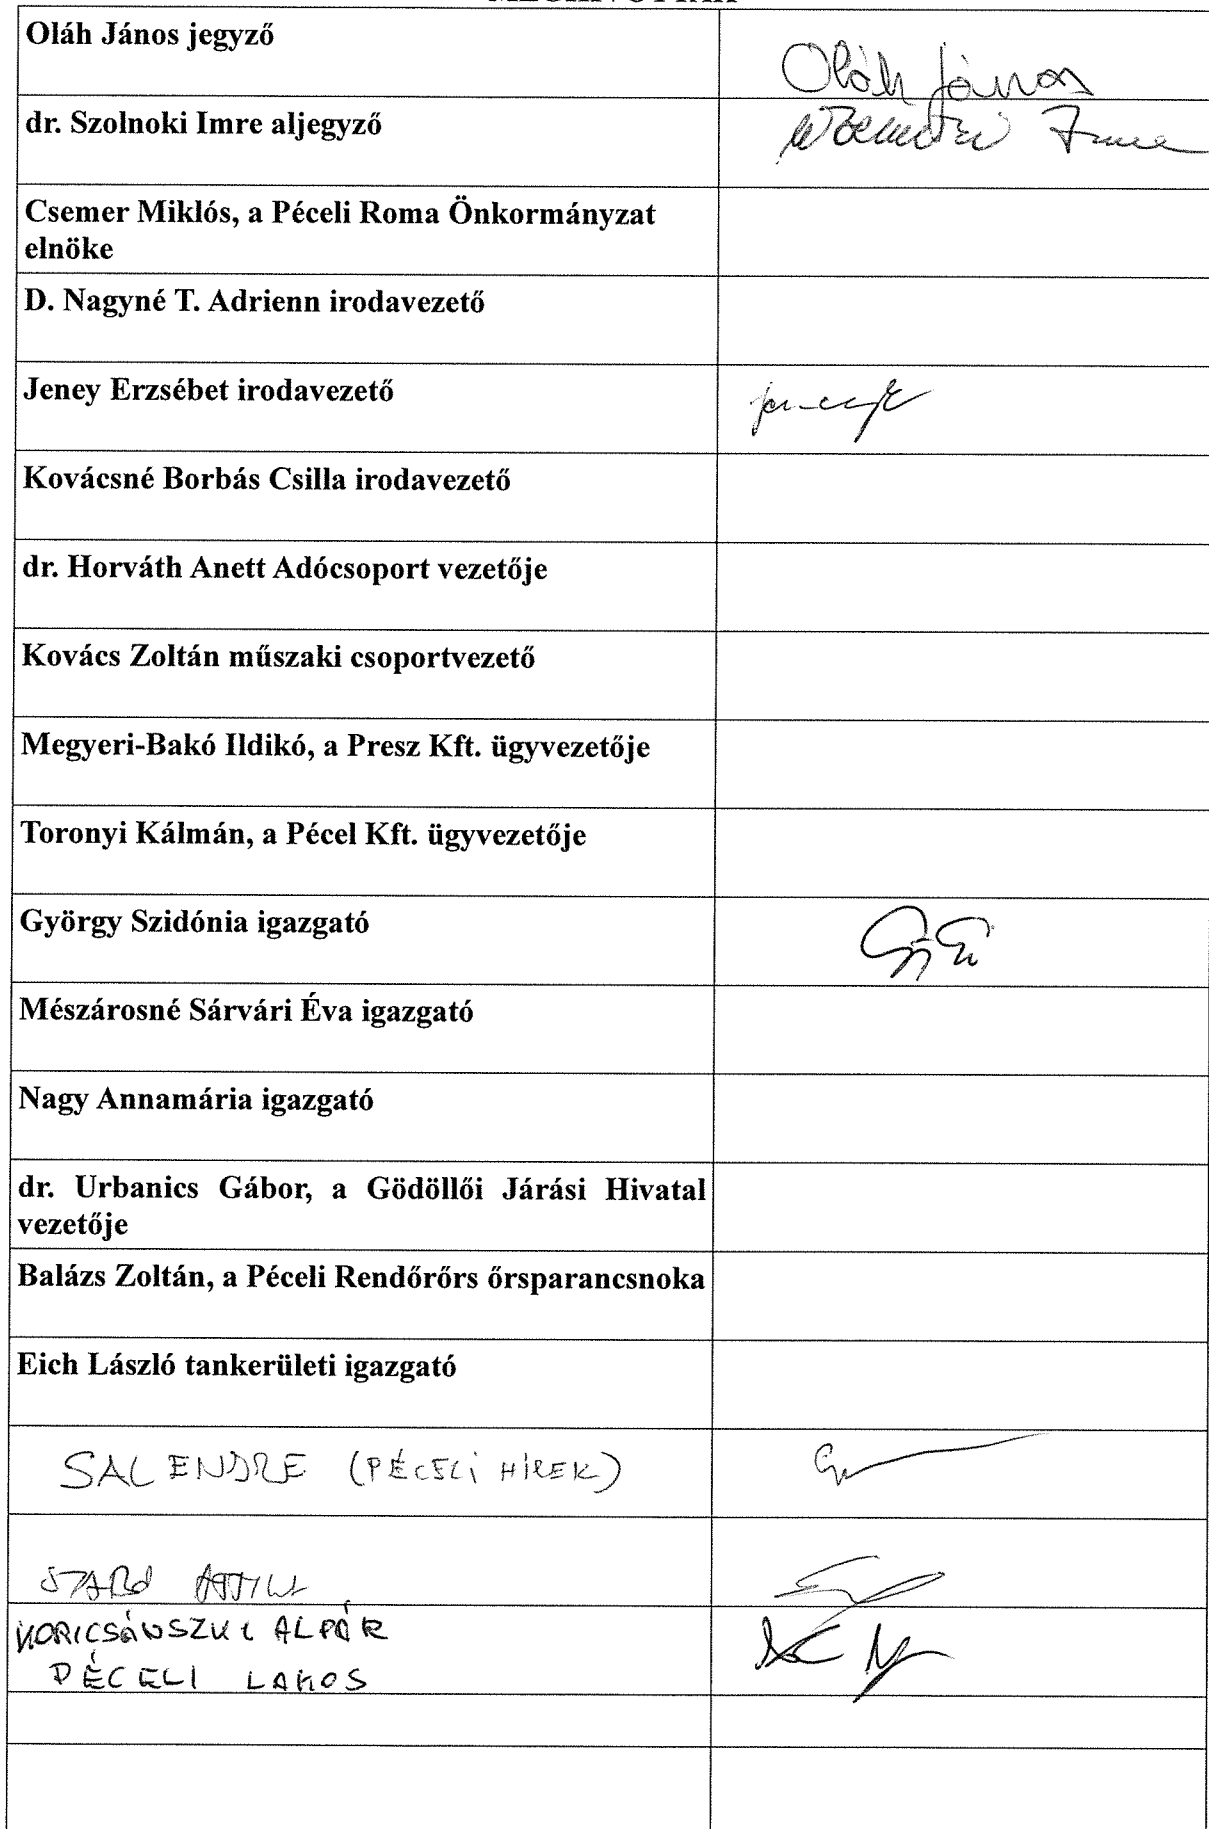 Oláh János jegyző
Oláh János
dr. Szolnoki Imre aljegyző
Imre
Csemer Miklós, a Péceli Roma Önkormányzat
elnöke
D. Nagyné T. Adrienn irodavezető
Jeney Erzsébet irodavezető
Kovácsné Borbás Csilla irodavezető
dr. Horváth Anett Adócsoport vezetője
Kovács Zoltán műszaki csoportvezető
Megyeri-Bakó Ildikó, a Presz Kft. ügyvezetője
Toronyi Kálmán, a Pécel Kft. ügyvezetője
György Szidónia igazgató
Mészárosné Sárvári Éva igazgató
Nagy Annamária igazgató
dr. Urbanics Gábor, a Gödöllői Járási Hivatal
vezetője
Balázs Zoltán, a Péceli Rendőrőrs őrsparancsnoka
Eich László tankerületi igazgató
(PÉCELI HÍREK)
ALPÁR
PÉCELI LAKOS